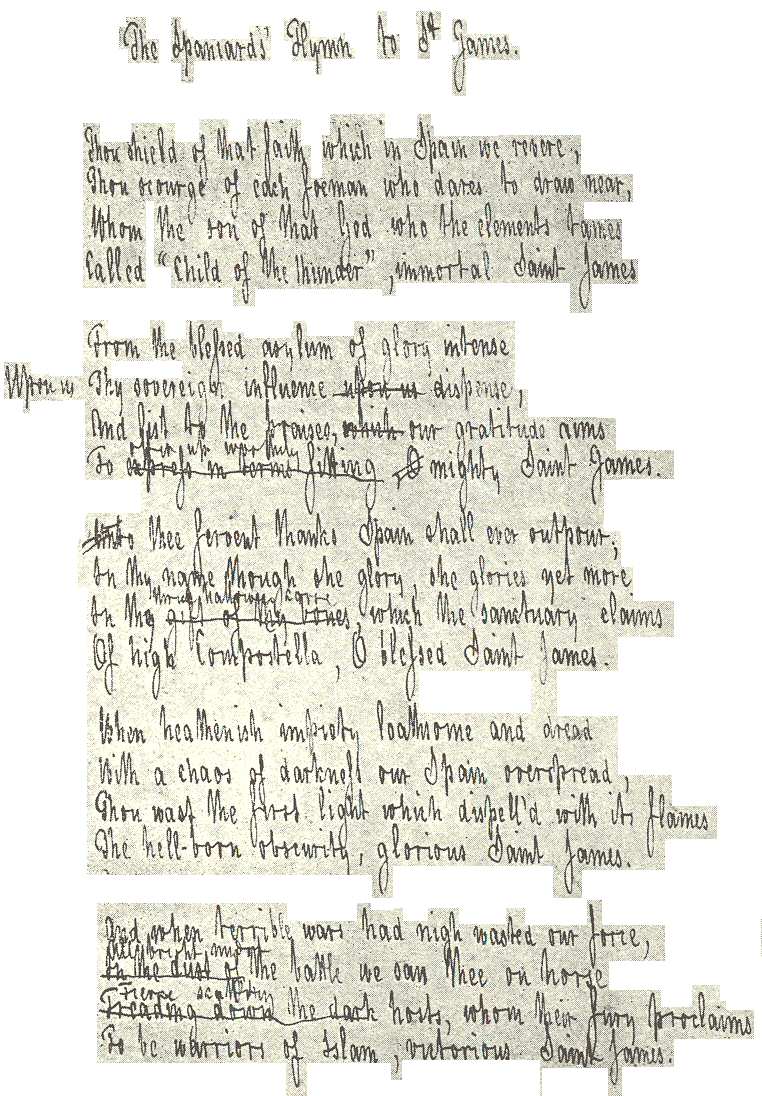 The Spaniards' Hymn to St James.
Thou shield of that faith which in Spain we revere,
Thou scourge of each foeman who dares to draw near,
Whom the son of that God who the elements tames
Called "Child of the thunder", immortal Saint James
From the blessed asylum of glory intense
Upon us Thy sovereign influence upon us dispense,
And list to the praises, which our gratitude aims
offer up worthily
To express in terms fitting, O mighty Saint James.
Unto thee fervent thanks Spain shall ever outpour;
In thy name though she glory, she glories yet more
thrice hallowed corse
In the gift of thy bones, which the sanctuary claims
Of high Compostella, O blessed Saint James.
When heathenish impiety loathsome and dread
With a chaos of darkness our Spain overspread,
Thou wast the first light which dispell'd with its flames
The hell-born obscurity, glorious Saint James.
And when terrible wars had nigh wasted our force,
All bright midst
In the dust of the battle we saw thee on horse
Fierce scattering
Treading down the dark hosts, whom their fury proclaims
To be warriors of Islam, victorious Saint James.